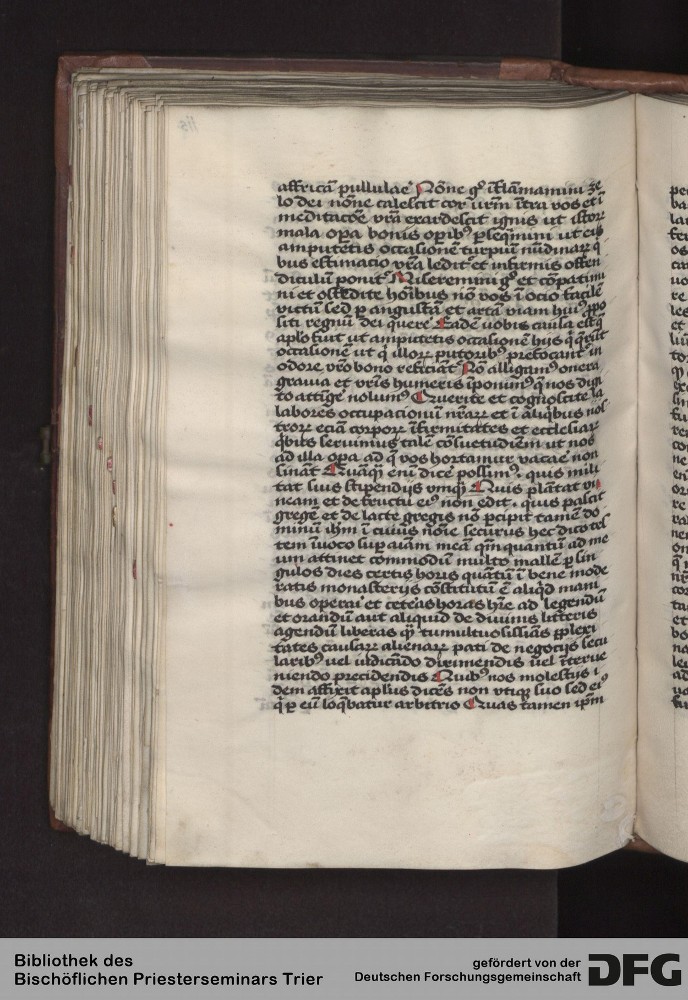 affricā pullulae Nōne g° īflāmamini ze
lo dei nōne calescit cor urm̄ ītra vos et ī
meditacōe vrā exardescit ignis ut istor
mala opa bonis opib9 pseq̄mini ut eis
amputetis occasionē turpiū nūdinaꝝ q̄
bus estimacio vrā ledit et infirmis offen
diculū ponit Miseremini g° et cōpatimi
ni et ostēdite hoībus nō vos ī ocio facilē
victū sed p angustā et artā viam hui9 ppo
siti regnū dei quere Eadē uobis causa est q̄
aplo fuit ut amputetis occasionē hijs q̄ q̄rūt
occasionē ut q̄ illoꝝ putorib9 prefocant in
odore vr̄o bono reficiāt Nō alligam9 onera
grauia et vris humeris īponim9 q̄ nos digi
to attīge nolum9 Querite et cognoscite la
labores occupacionū nr̄aꝝ et ī aliqibus nos
troꝝ eciā corpoꝝ īfirmitates et ecclesiaꝝ
q̄bus seruimus talē cōsuetudiēm ut nos
ad illa opa ad q̄ vos hortamur vacae non
sinat Quāq̄ enī dice possim9. quis mili
tat suis stipendijs vmq̄ Quis plātat vi
neam et de fructu ei9 non edit. quis pascit
gregē et de lacte gregis nō pcipit tamē do
minū ihm ī cuius nōie securus hec dico tes
tem īuoco sup aīam meā qm̄ quantū ad me
um attinet commodū multo mallē p sin
gulos dies certis horis quātū ī bene mode
ratis monasterijs cōstitutū ē aliqd mani
bus operai et ceteas horas hr̄e ad legendū
et orandū aut aliquid de diuinis litteris
agendū liberas q̄ tumultuosissiās pplexi
tates causaꝝ alienaꝝ pati de negocijs secu
larib9 uel iudicādo dirimendis uel īterue
niendo precidendis Quib9 nos molestijs i
dem affixit aplus dicēs non vtiqꝫ suo sed ei9
q̄ p eū loq̄batur arbitrio Quas tamen ipm
Bibliothek des
Bischöflichen Priesterseminars Trier
gefördert von der
Deutschen Forschungsgemeinschaft
DFG